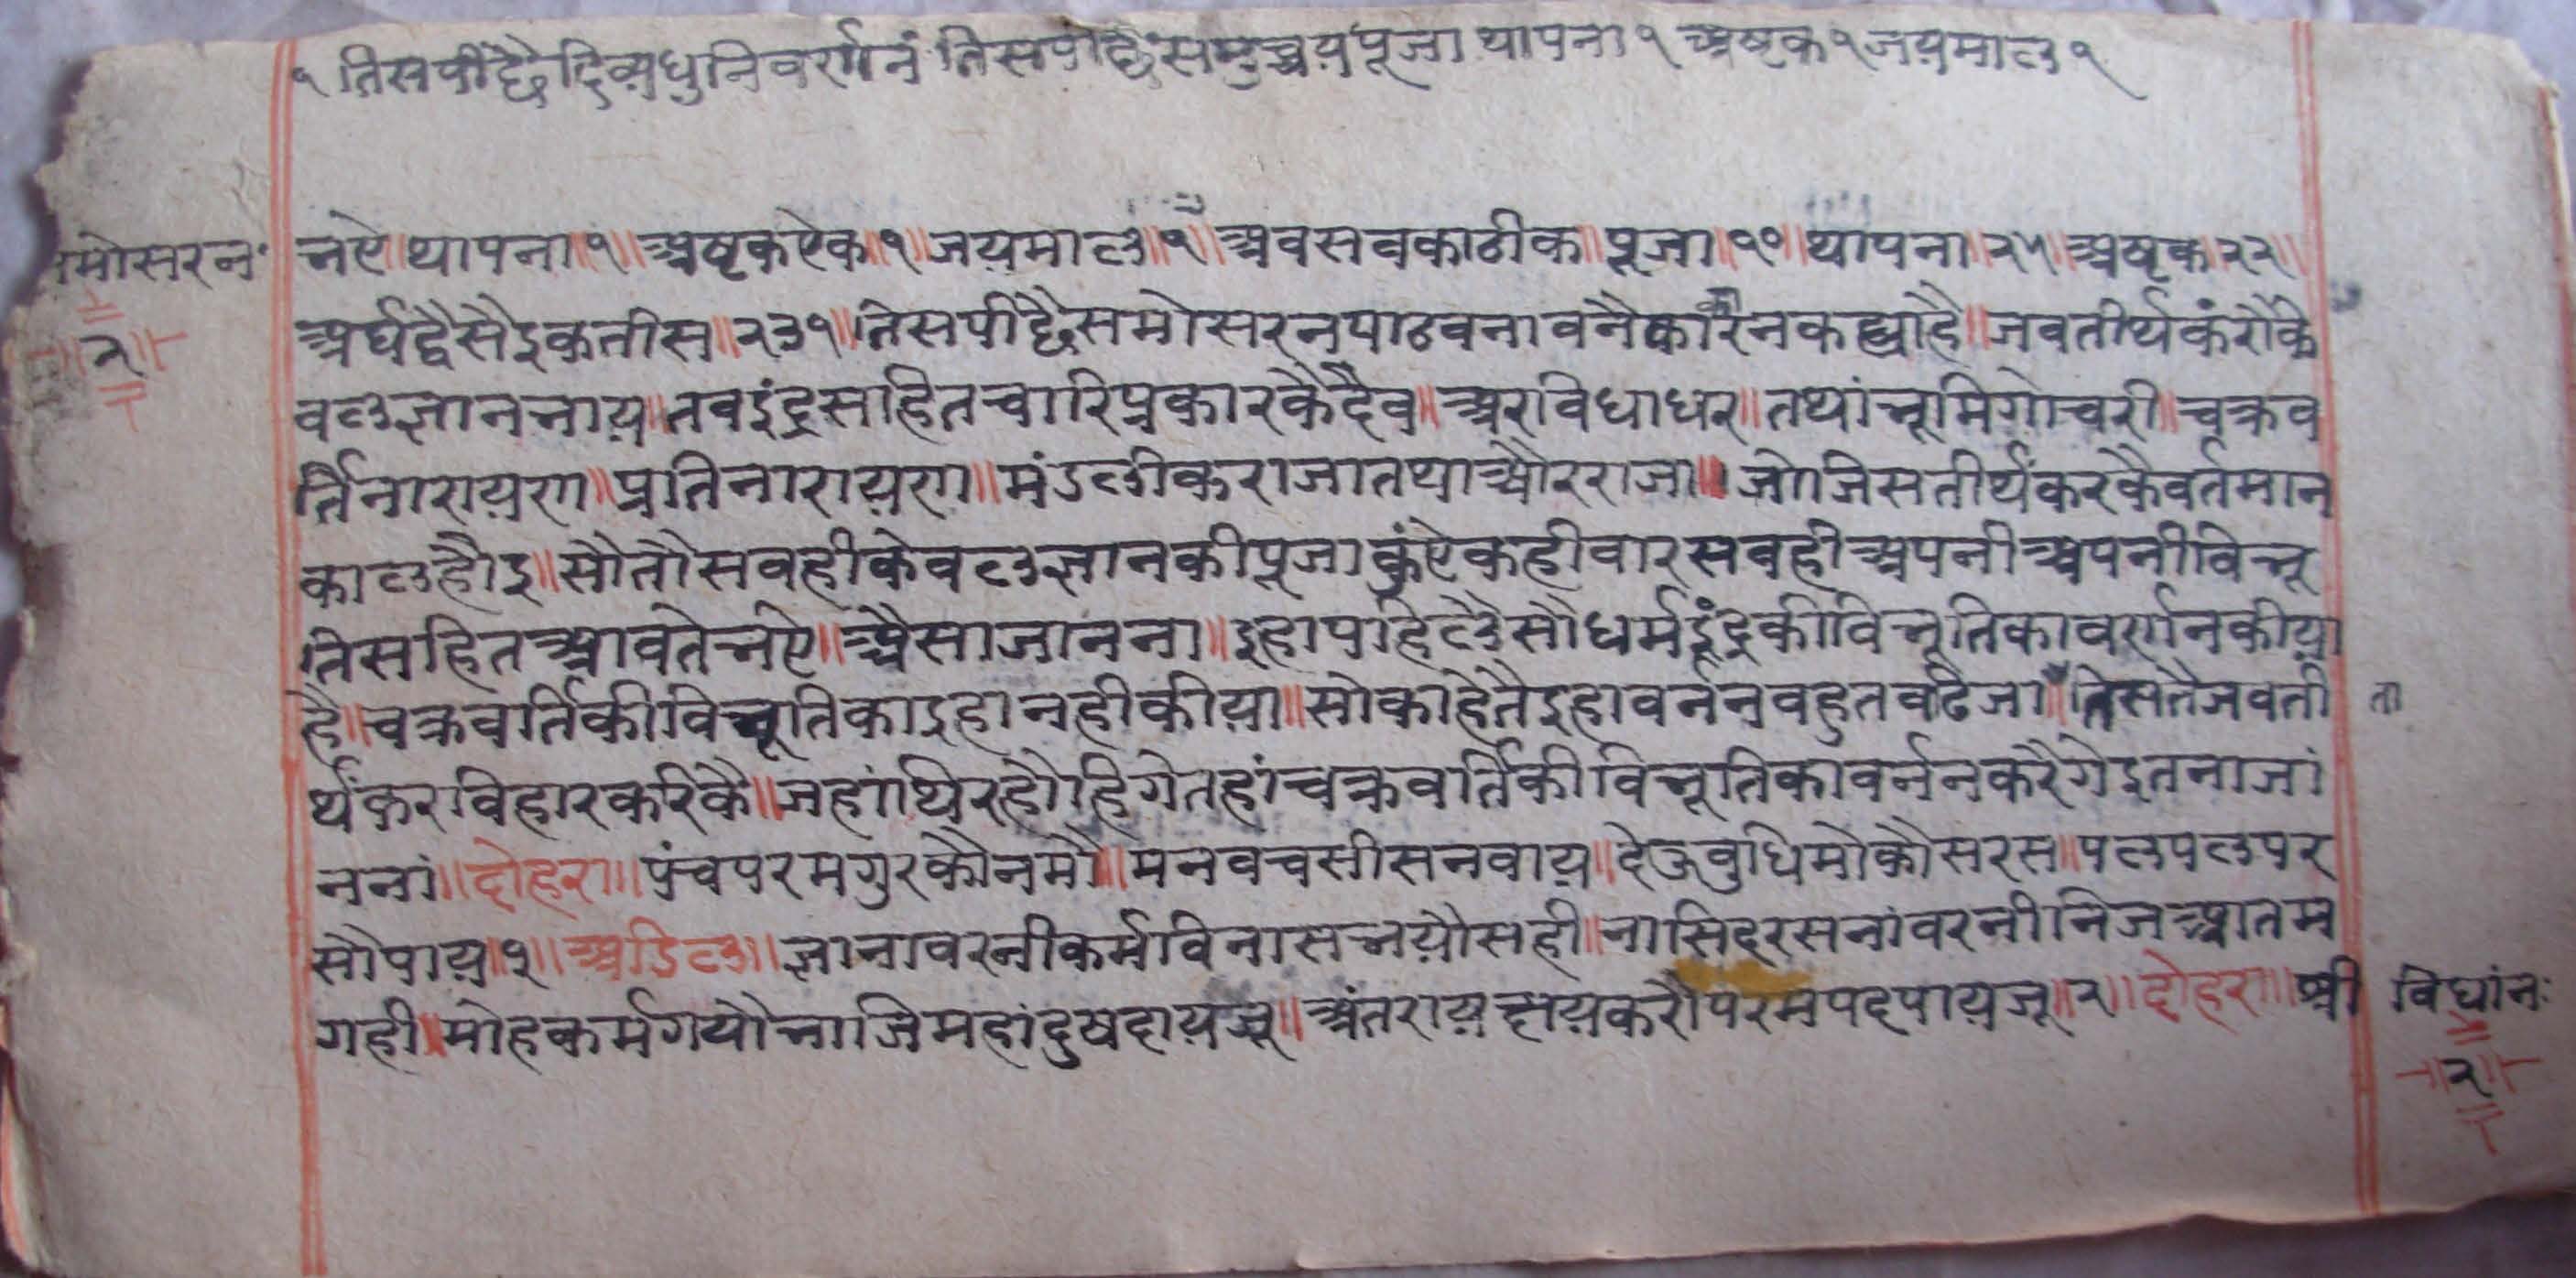 १ तिसपीछै दिव्यधुनिवर्णनं तिसपीछै समुच्चय पूजा थापना १ अष्टक १ जयमाल १
समोसरन॰
॥२॥
भऐ॥थापना॥१॥अष्टकऐक॥१॥जयमाल॥१॥अवसवकाठीक॥पूजा॥११॥थापना॥२५॥अष्टक॥२२॥
अर्घद्वैसैइकतीस॥२३१॥तिसपीछैसमोसरनपाठवनावनैकाकारनकह्याहै॥जवतीर्थकंरौकै
वलज्ञानभाय॥तवइंद्रसहितच्यारिप्रकारकैदैव॥अरविधाधर॥तथांभूमिगोचरी॥चक्रव
र्तिनारायरण॥प्रतिनारायरण॥मंडलीकराजातथाऔरराजा॥जोजिसतीर्थंकरकैवर्तमान
कालहौइ॥सौतौसवहीकेवलज्ञानकीपूजाकुंऐकहीवारसवहीअपनीअपनीविभू
तिसहितआवतेभऐ॥औसाजानना॥इहापहिलैसौधर्मइंद्रकीविभूतिकावर्णनकीया
है॥चक्रवर्तिकीविभूतिकाइहानहीकीया॥सोकाहेतैइहावर्ननवहुतवढिजा॥तिसतैजवती
ता
र्थंकरविहारकरिकै॥जहांथिरहौहिगेतहांचक्रवर्तिकीविभूतिकावर्ननकरैगेइतनाजां
ननां॥दोहरा॥पंचपरमगुरकौनमौ॥मनवचसीसनवाय॥देऊवुधिमोकौसरस॥पलपलपर
सौपाय॥१॥अडिल॥ज्ञानावरनीकर्मविनासभयौसही॥नासिदरसनांवरनीनिजआतम
गही॥मोहकर्मगयौभाजिमहांदुषदायजू॥अंतरायक्षयकरौपरमपदपायजू॥२॥दोहरा॥श्री
विधांन॰
॥२॥